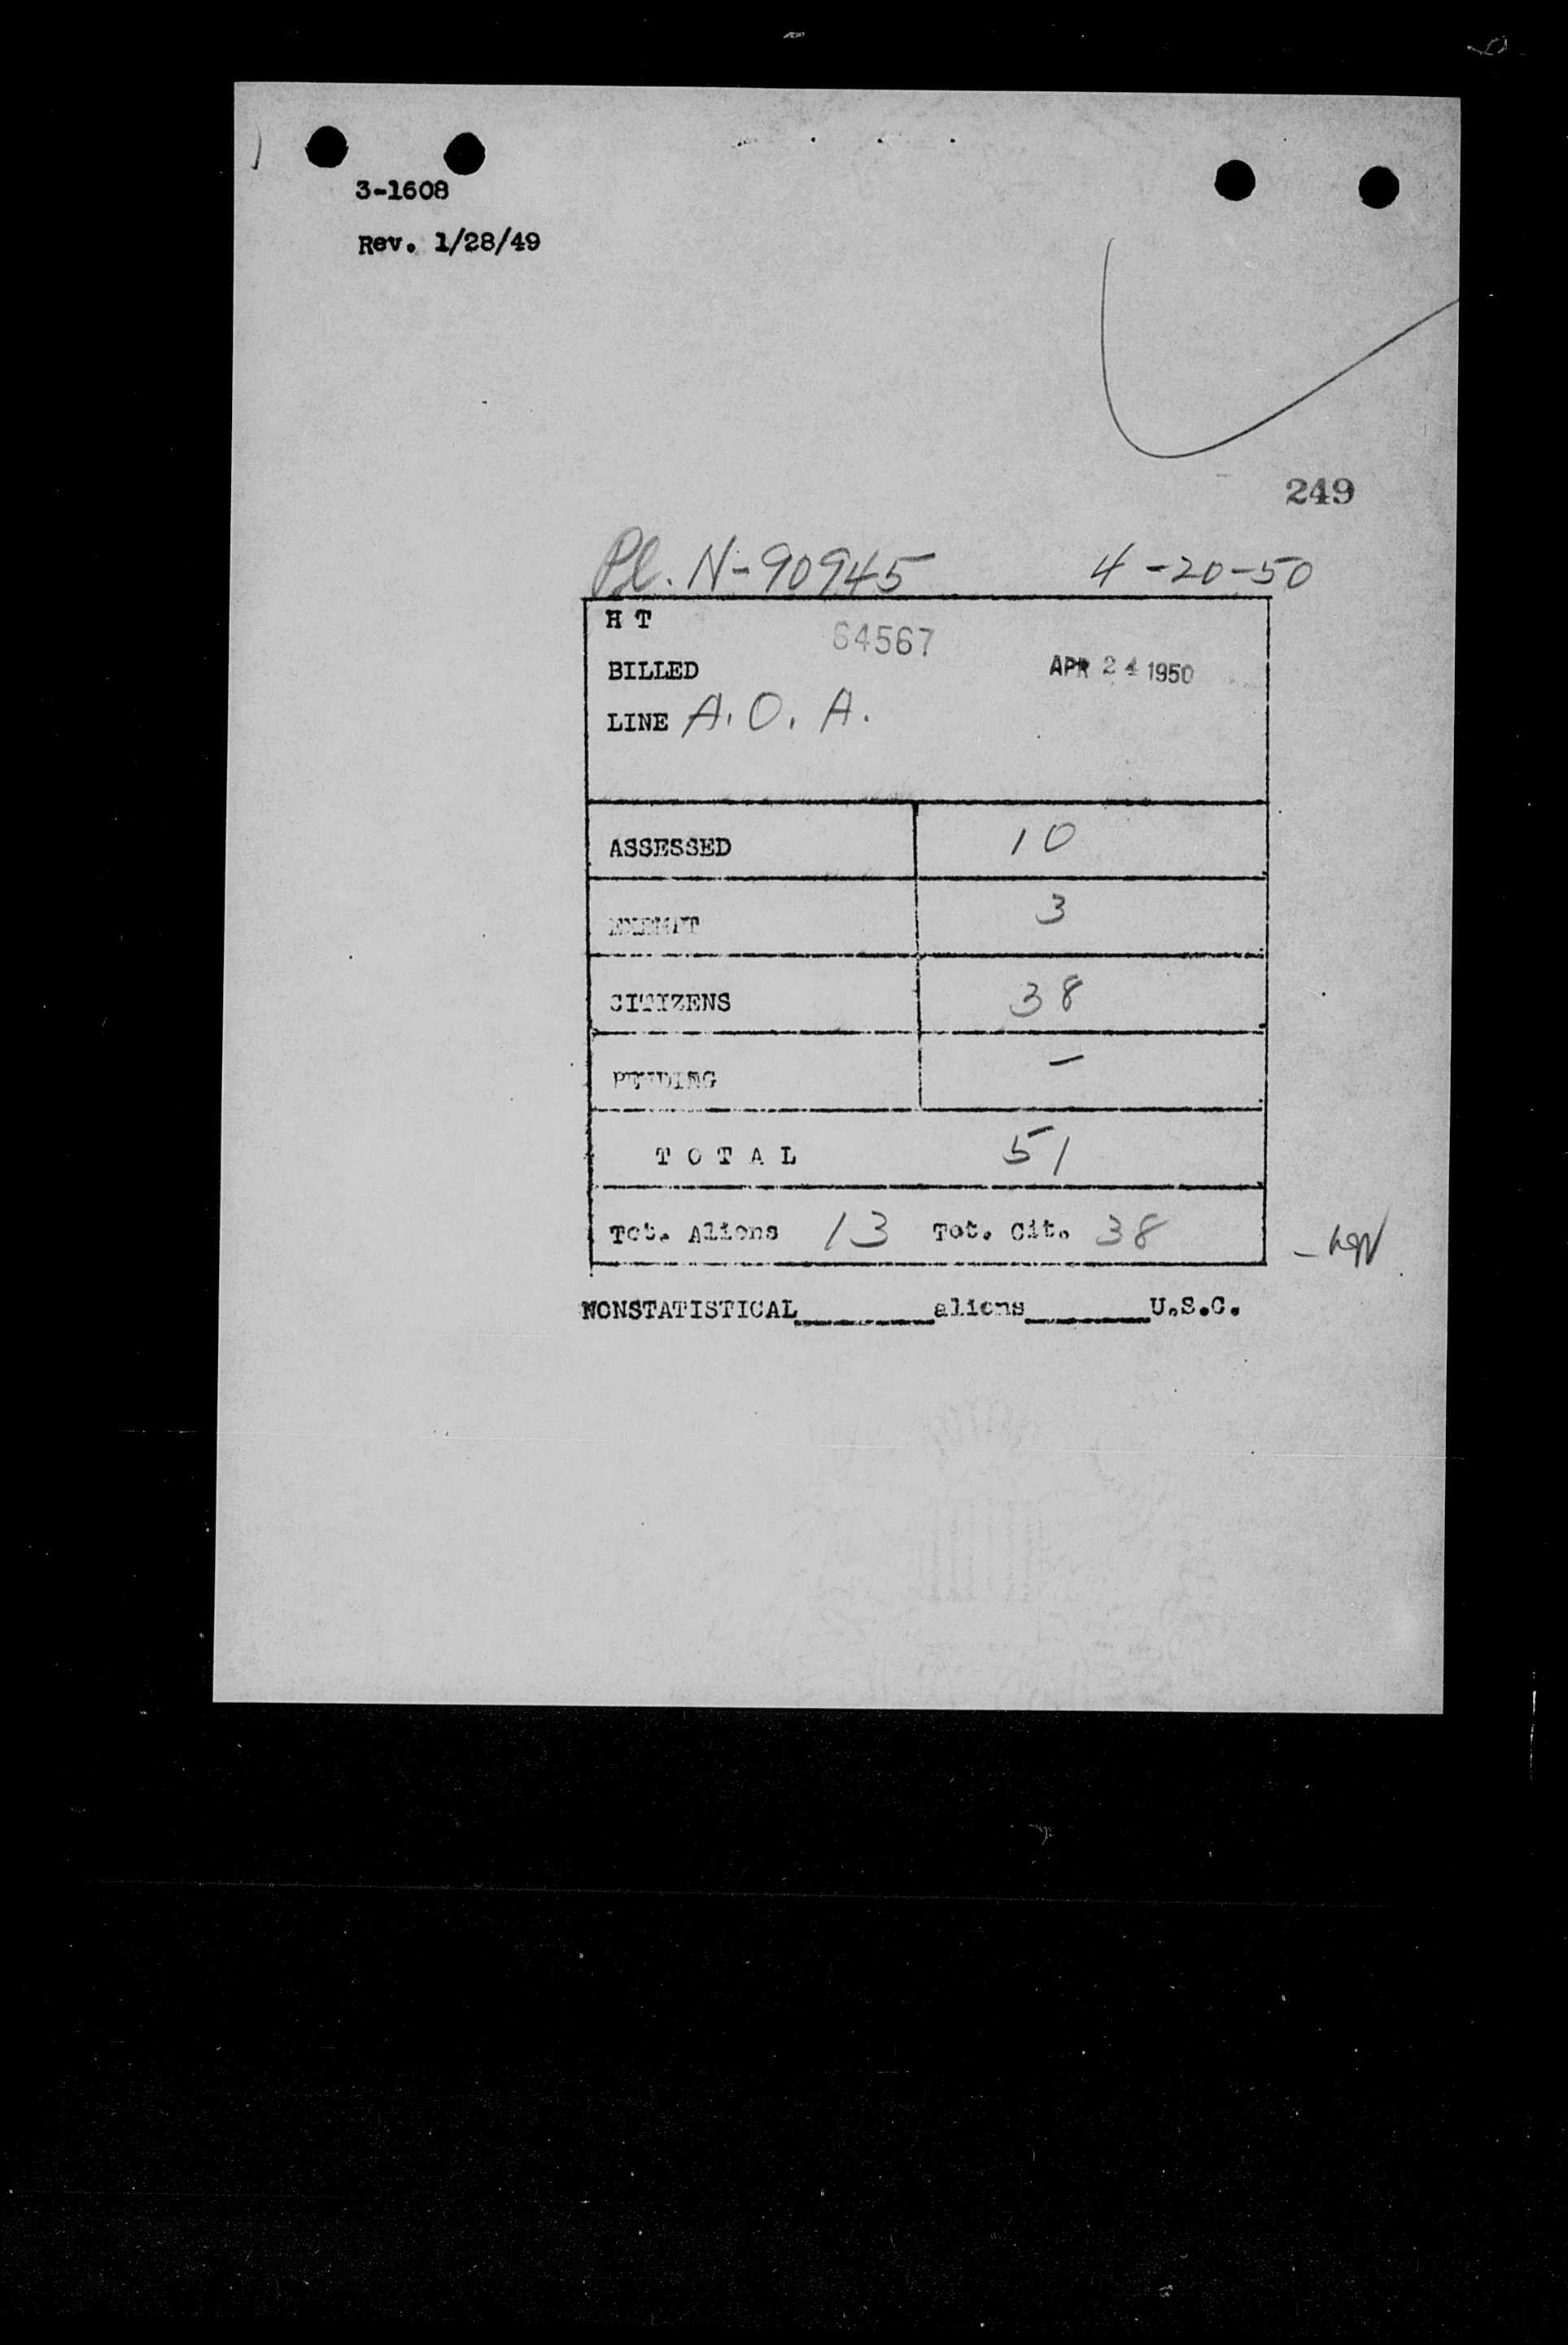 3-1608
Rev. 1/28/49
249
Pl. N-90945 4-20-50
H T
64567
BILLED APR 24 1950
LINE A. O. A.
ASSESSED 10
EXEMPT 3
CITIZENS 38
PENDING -
T O T A L 51
Tot. Aliens 13 Tot. Cit. 38
NONSTATISTICAL________aliens________U.S.C.